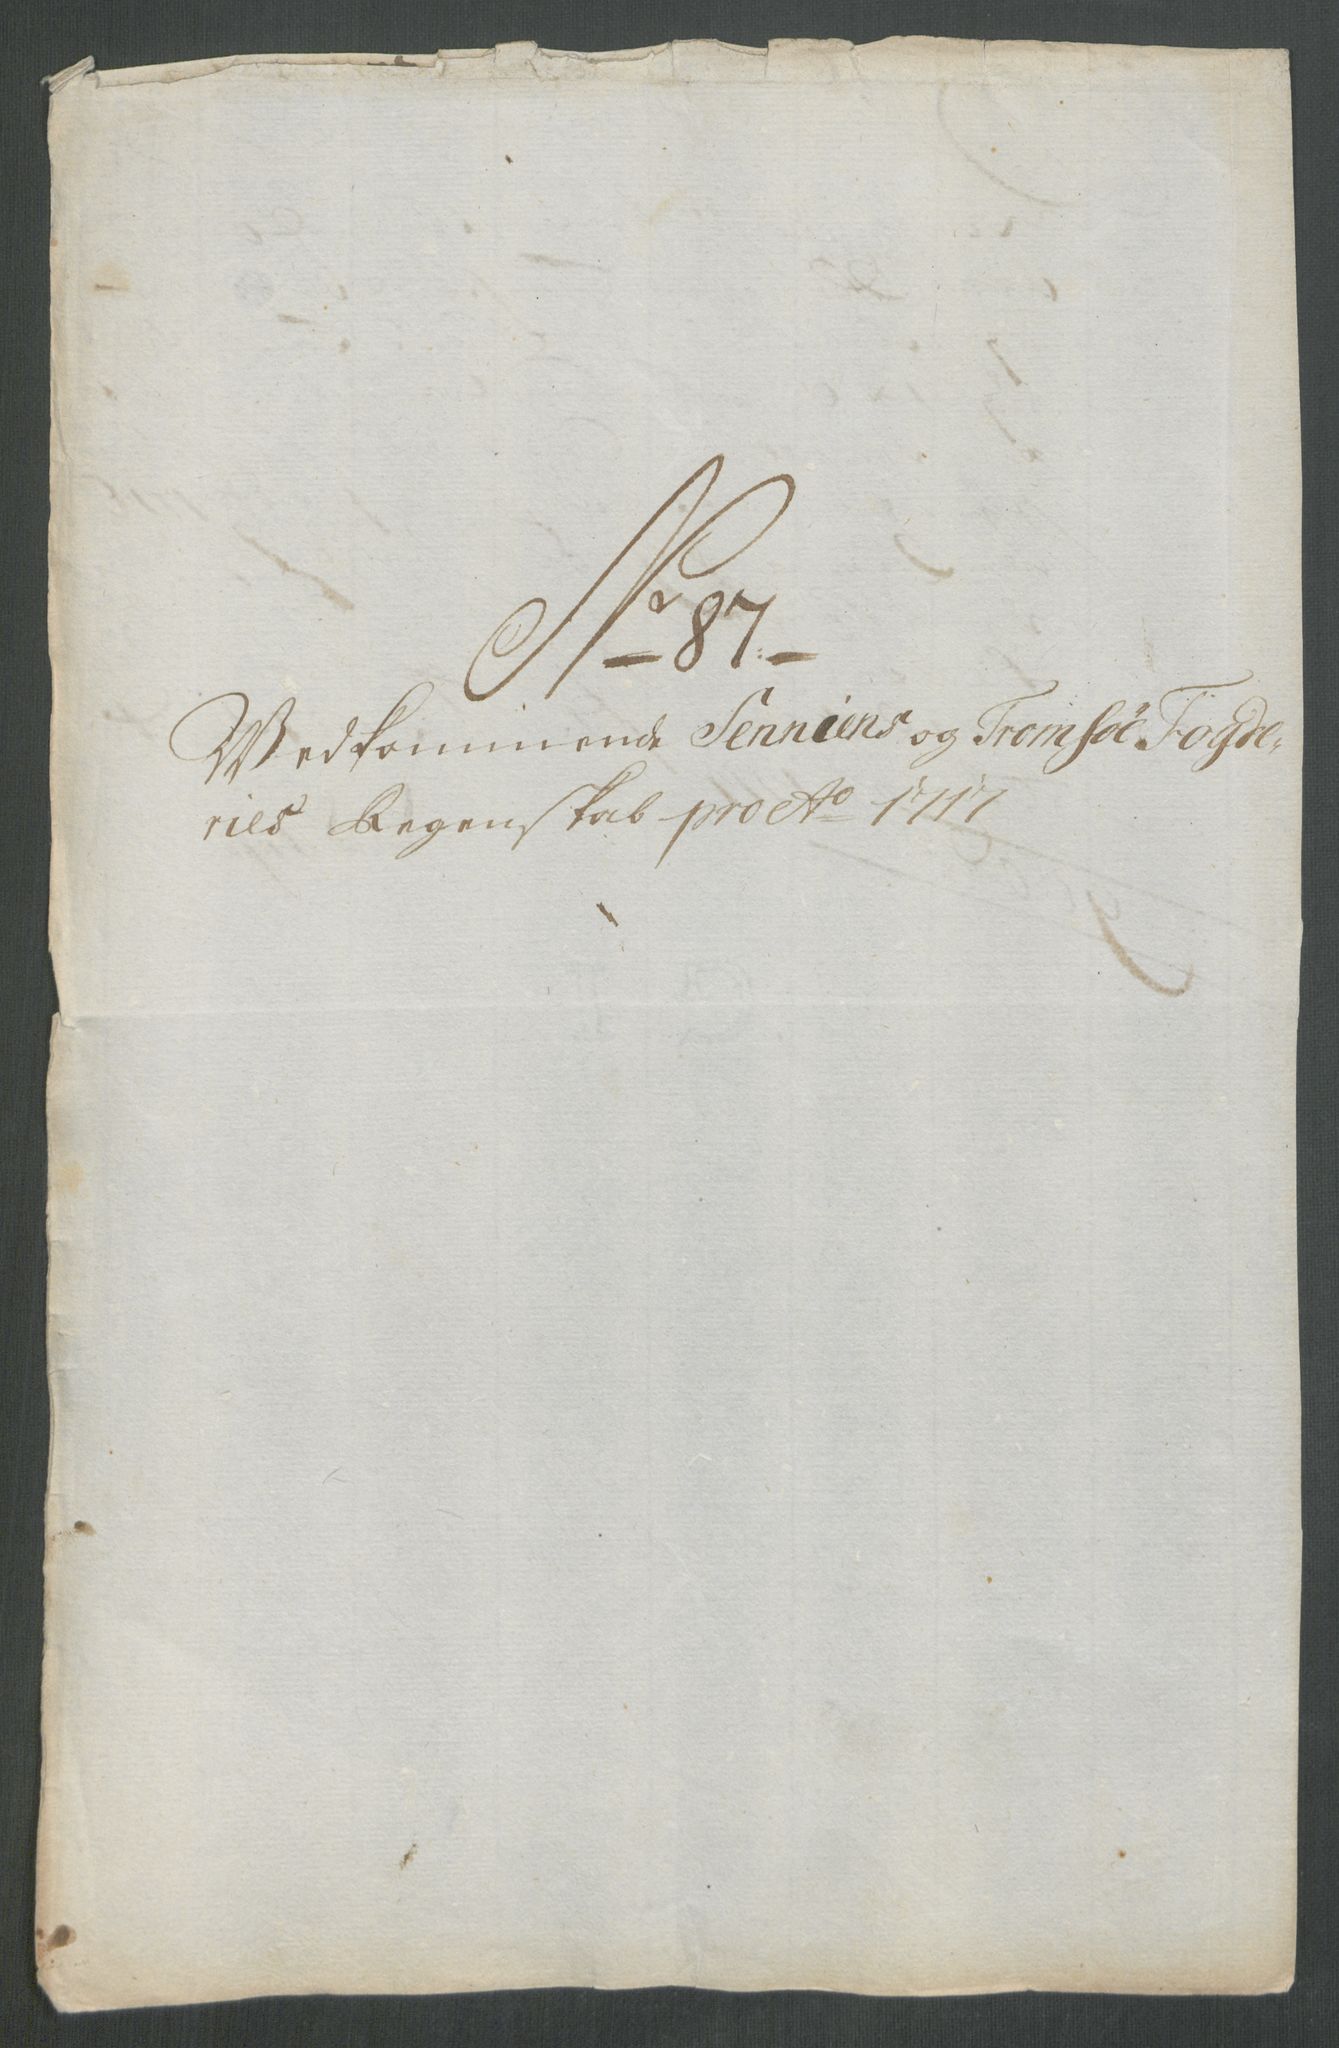 No 87.
Vedkommende Senniens og Tromsöe Fogde,
ries Regenskab pro Ao 1717